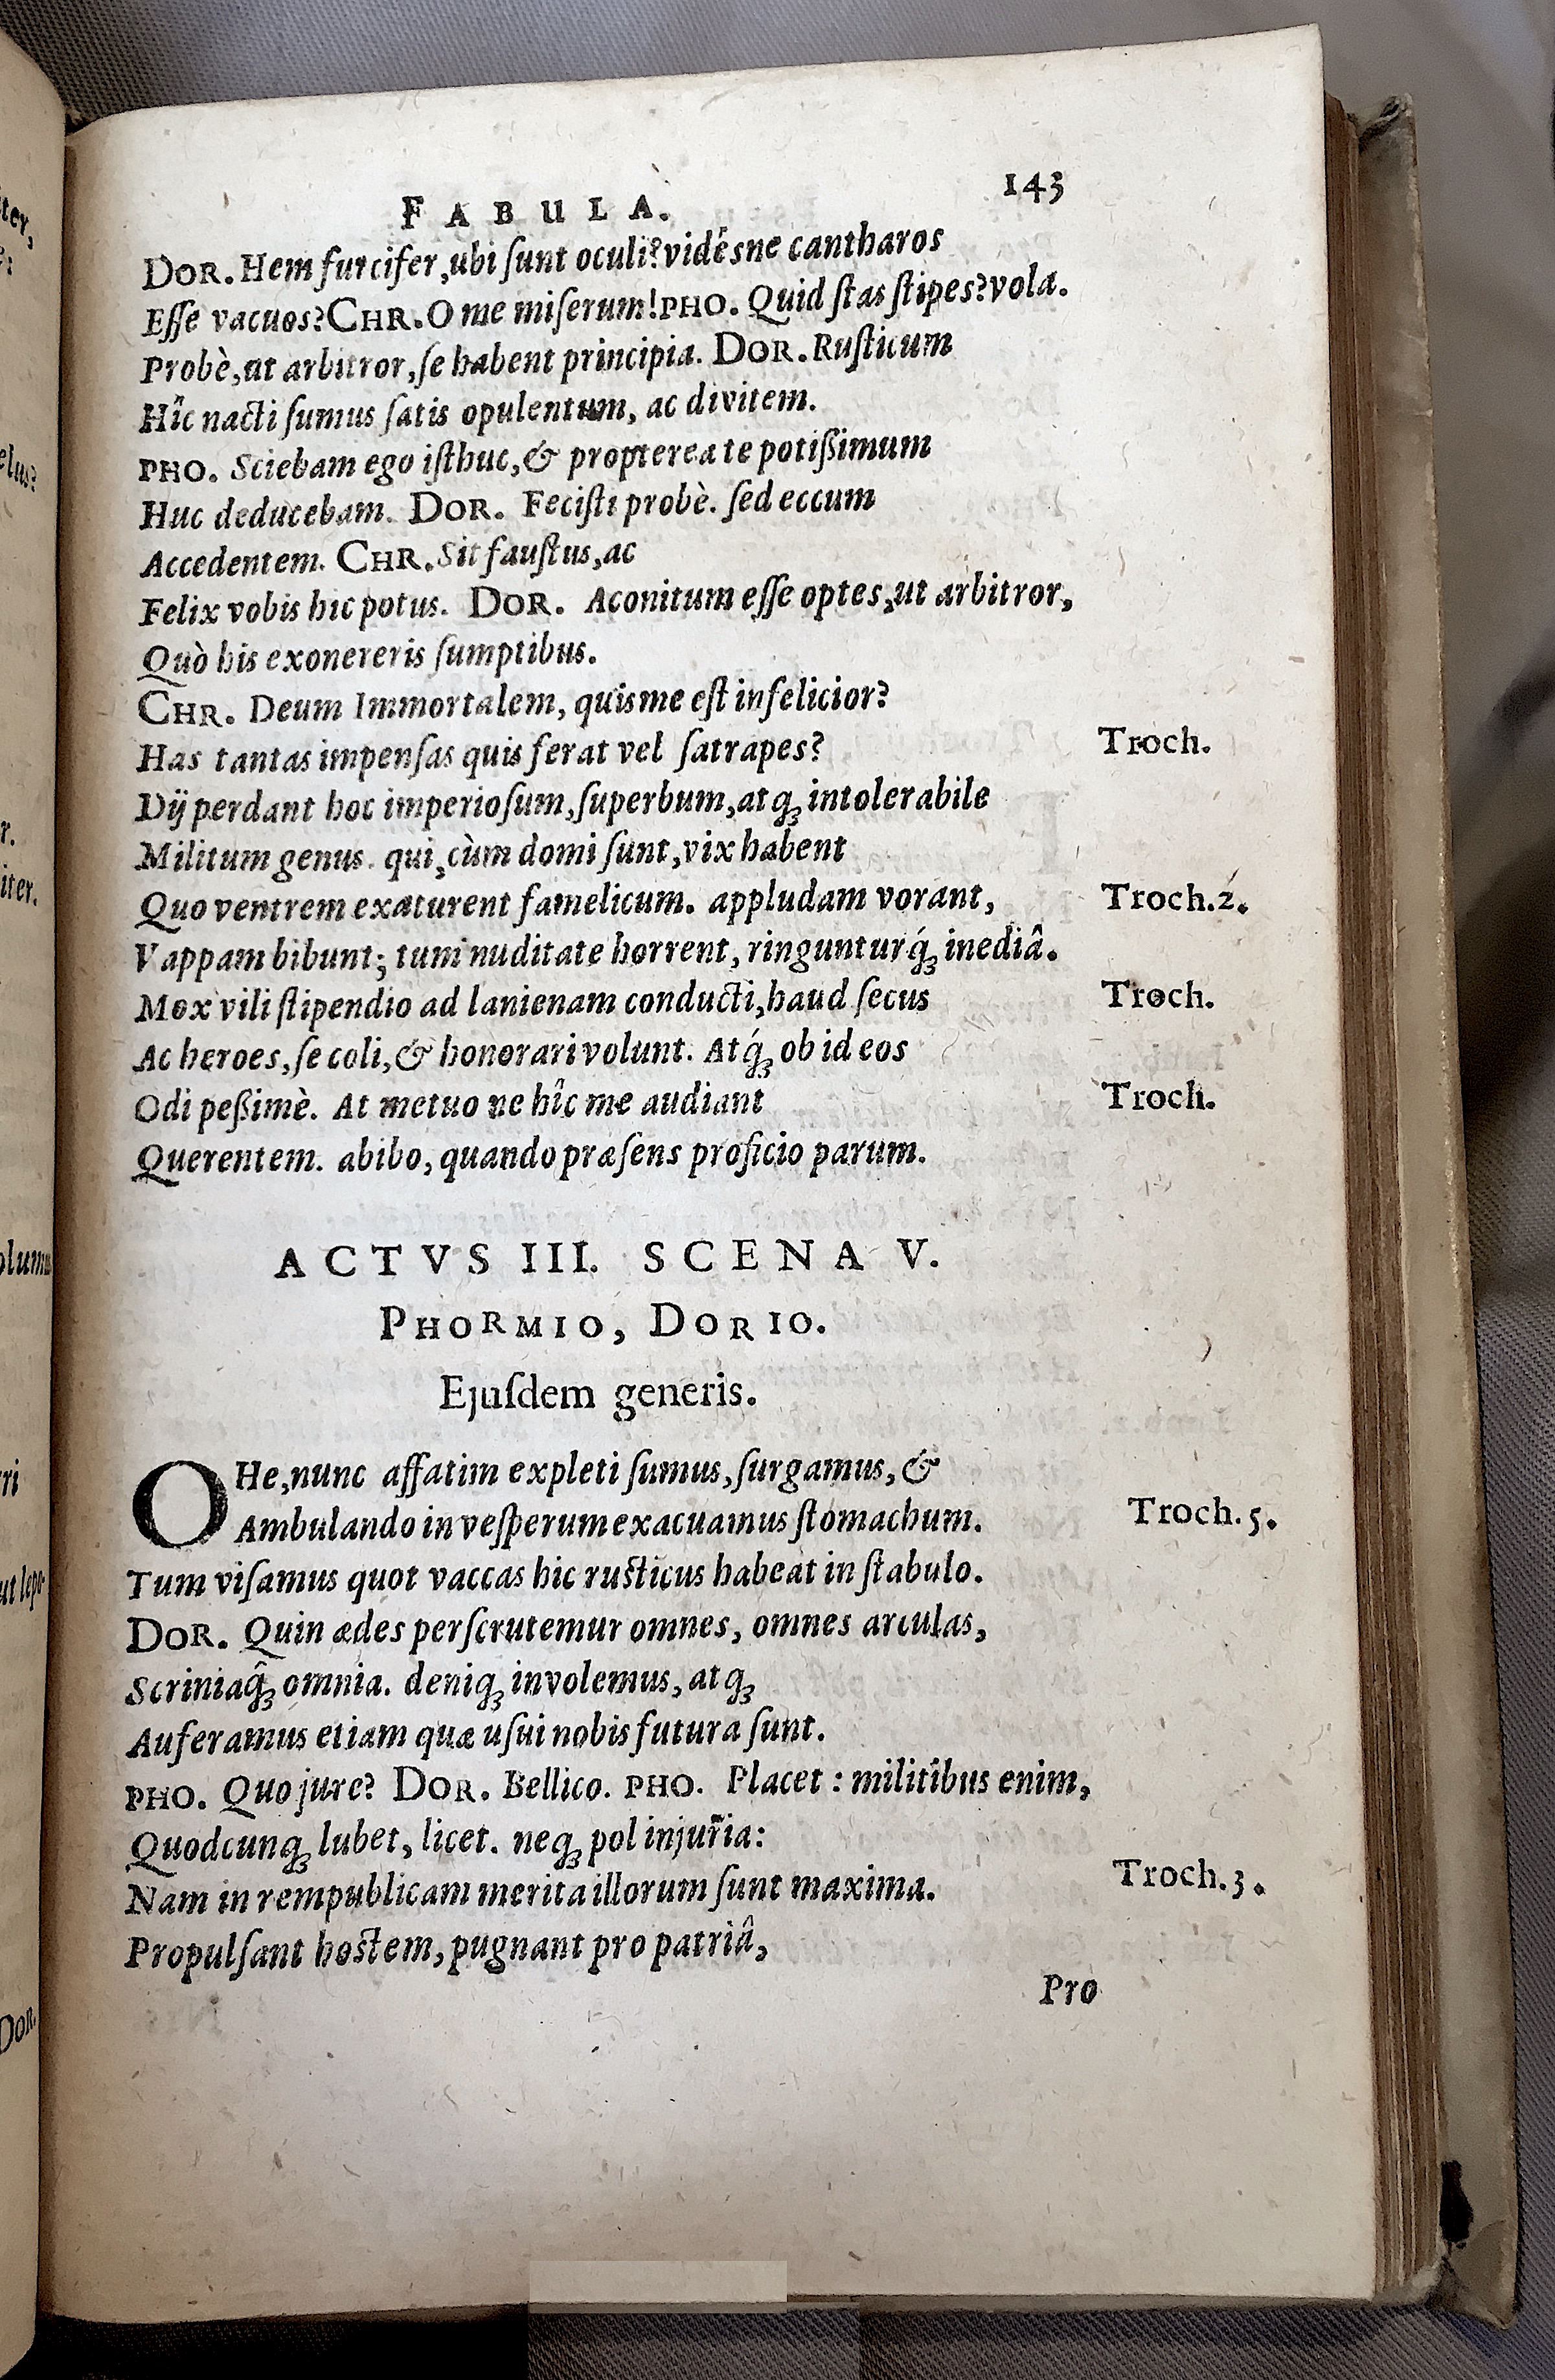 FABULA. 143
DOR. Hem furcifer, ubi ſunt oculi? vidésne cantharos
Eſſe vacuos? CHR. O me miſerum! PHO. Quid ſtas ſtipes? vola.
Probè, ut arbitror, ſe habent principia. DOR. Ruſticum
Hîc nacti ſumus ſatis opulentum, ac divitem.
PHO. Sciebam ego iſthuc, & propterea te potißimum
Huc deducebam. DOR. Feciſti probè. ſed eccum
Accedentem. CHR. Sit fauſtus, ac
Felix vobis hic potus. DOR. Aconitum eſſe optes, ut arbitror,
Quò his exonereris ſumptibus.
CHR. Deum Immortalem, quis me eſt infelicior?
Has tantas impenſas quis ferat vel ſatrapes? Troch.
Dij perdant hoc imperioſum, ſuperbum, atq; intolerabile
Militum genus. qui, cùm domi ſunt, vix habent
Quo ventrem exaturent famelicum. appludam vorant, Troch.2.
Vappam bibunt; tum nuditate horrent, ringunturq́; inediâ.
Mox vili ſtipendio ad lanienam conducti, haud ſecus Troch.
Ac heroes, ſe coli, & honorari volunt. Atq́; ob id eos
Odi peßimè. At metuo ne hîc me audiant Troch.
Querentem. abibo, quando præſens proficio parum.
ACTVS III. SCENA V.
PHORMIO, DORIO.
Ejuſdem generis.
OHe, nunc affatim expleti ſumus, ſurgamus, &
Ambulando in veſperum exacuamus ſtomachum. Troch.5.
Tum viſamus quot vaccas hic ruſticus habeat in ſtabulo.
DOR. Quin ædes perſcrutemur omnes, omnes arculas,
Scriniaq̂; omnia. deniq; involemus, atq;
Auferamus etiam quæ uſui nobis futura ſunt.
PHO. Quo jure? DOR. Bellico. PHO. Placet: militibus enim,
Quodcunq; lubet, licet. neq; pol injuria:
Nam in rempublicam merita illorum ſunt maxima. Troch.3.
Propulſant hoſtem, pugnant pro patriâ,
Pro